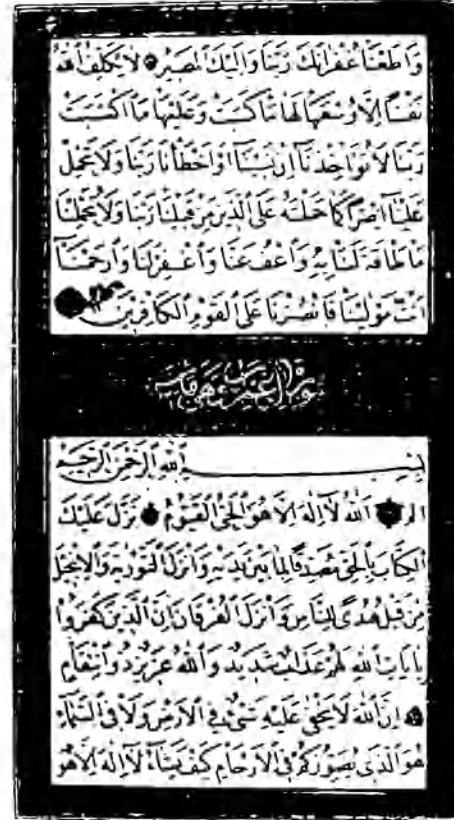 وَاَطَعْنَا غُفْرَانَكَ رَبَّنَا وَاِلَيْكَ الْمَصِيرُ لَا يُكَلِّفُ اللّٰهُ
نَفْسًا اِلَّا وُسْعَهَا لَهَا مَا كَسَبَتْ وَعَلَيْهَا مَا اكْتَسَبَتْ
رَبَّنَا لَا تُؤَاخِذْنَا اِنْ نَسِينَا اَوْ اَخْطَأْنَا رَبَّنَا وَلَا تَحْمِلْ
عَلَيْنَا اِصْرًا كَمَا حَمَلْتَهُ عَلَى الَّذِينَ مِنْ قَبْلِنَا رَبَّنَا وَلَا تُحَمِّلْنَا
مَا لَا طَاقَةَ لَنَا بِهِ وَاعْفُ عَنَّا وَاغْفِرْ لَنَا وَارْحَمْنَا
اَنْتَ مَوْلٰينَا فَانْصُرْنَا عَلَى الْقَوْمِ الْكَافِرِينَ
بِسْمِ اللّٰهِ الرَّحْمٰنِ الرَّحِيمِ
الم اَللّٰهُ لَا اِلٰهَ اِلَّا هُوَ الْحَيُّ الْقَيُّومُ نَزَّلَ عَلَيْكَ
الْكِتَابَ بِالْحَقِّ مُصَدِّقًا لِمَا بَيْنَ يَدَيْهِ وَاَنْزَلَ التَّوْرٰيةَ وَالْاِنْجِيلَ
مِنْ قَبْلُ هُدًى لِلنَّاسِ وَاَنْزَلَ الْفُرْقَانَ اِنَّ الَّذِينَ كَفَرُوا
بِاٰيَاتِ اللّٰهِ لَهُمْ عَذَابٌ شَدِيدٌ وَاللّٰهُ عَزِيزٌ ذُو انْتِقَامٍ
اِنَّ اللّٰهَ لَا يَخْفٰى عَلَيْهِ شَيْءٌ فِي الْاَرْضِ وَلَا فِي السَّمَاءِ
هُوَ الَّذِي يُصَوِّرُكُمْ فِي الْاَرْحَامِ كَيْفَ يَشَاءُ لَا اِلٰهَ اِلَّا هُوَ